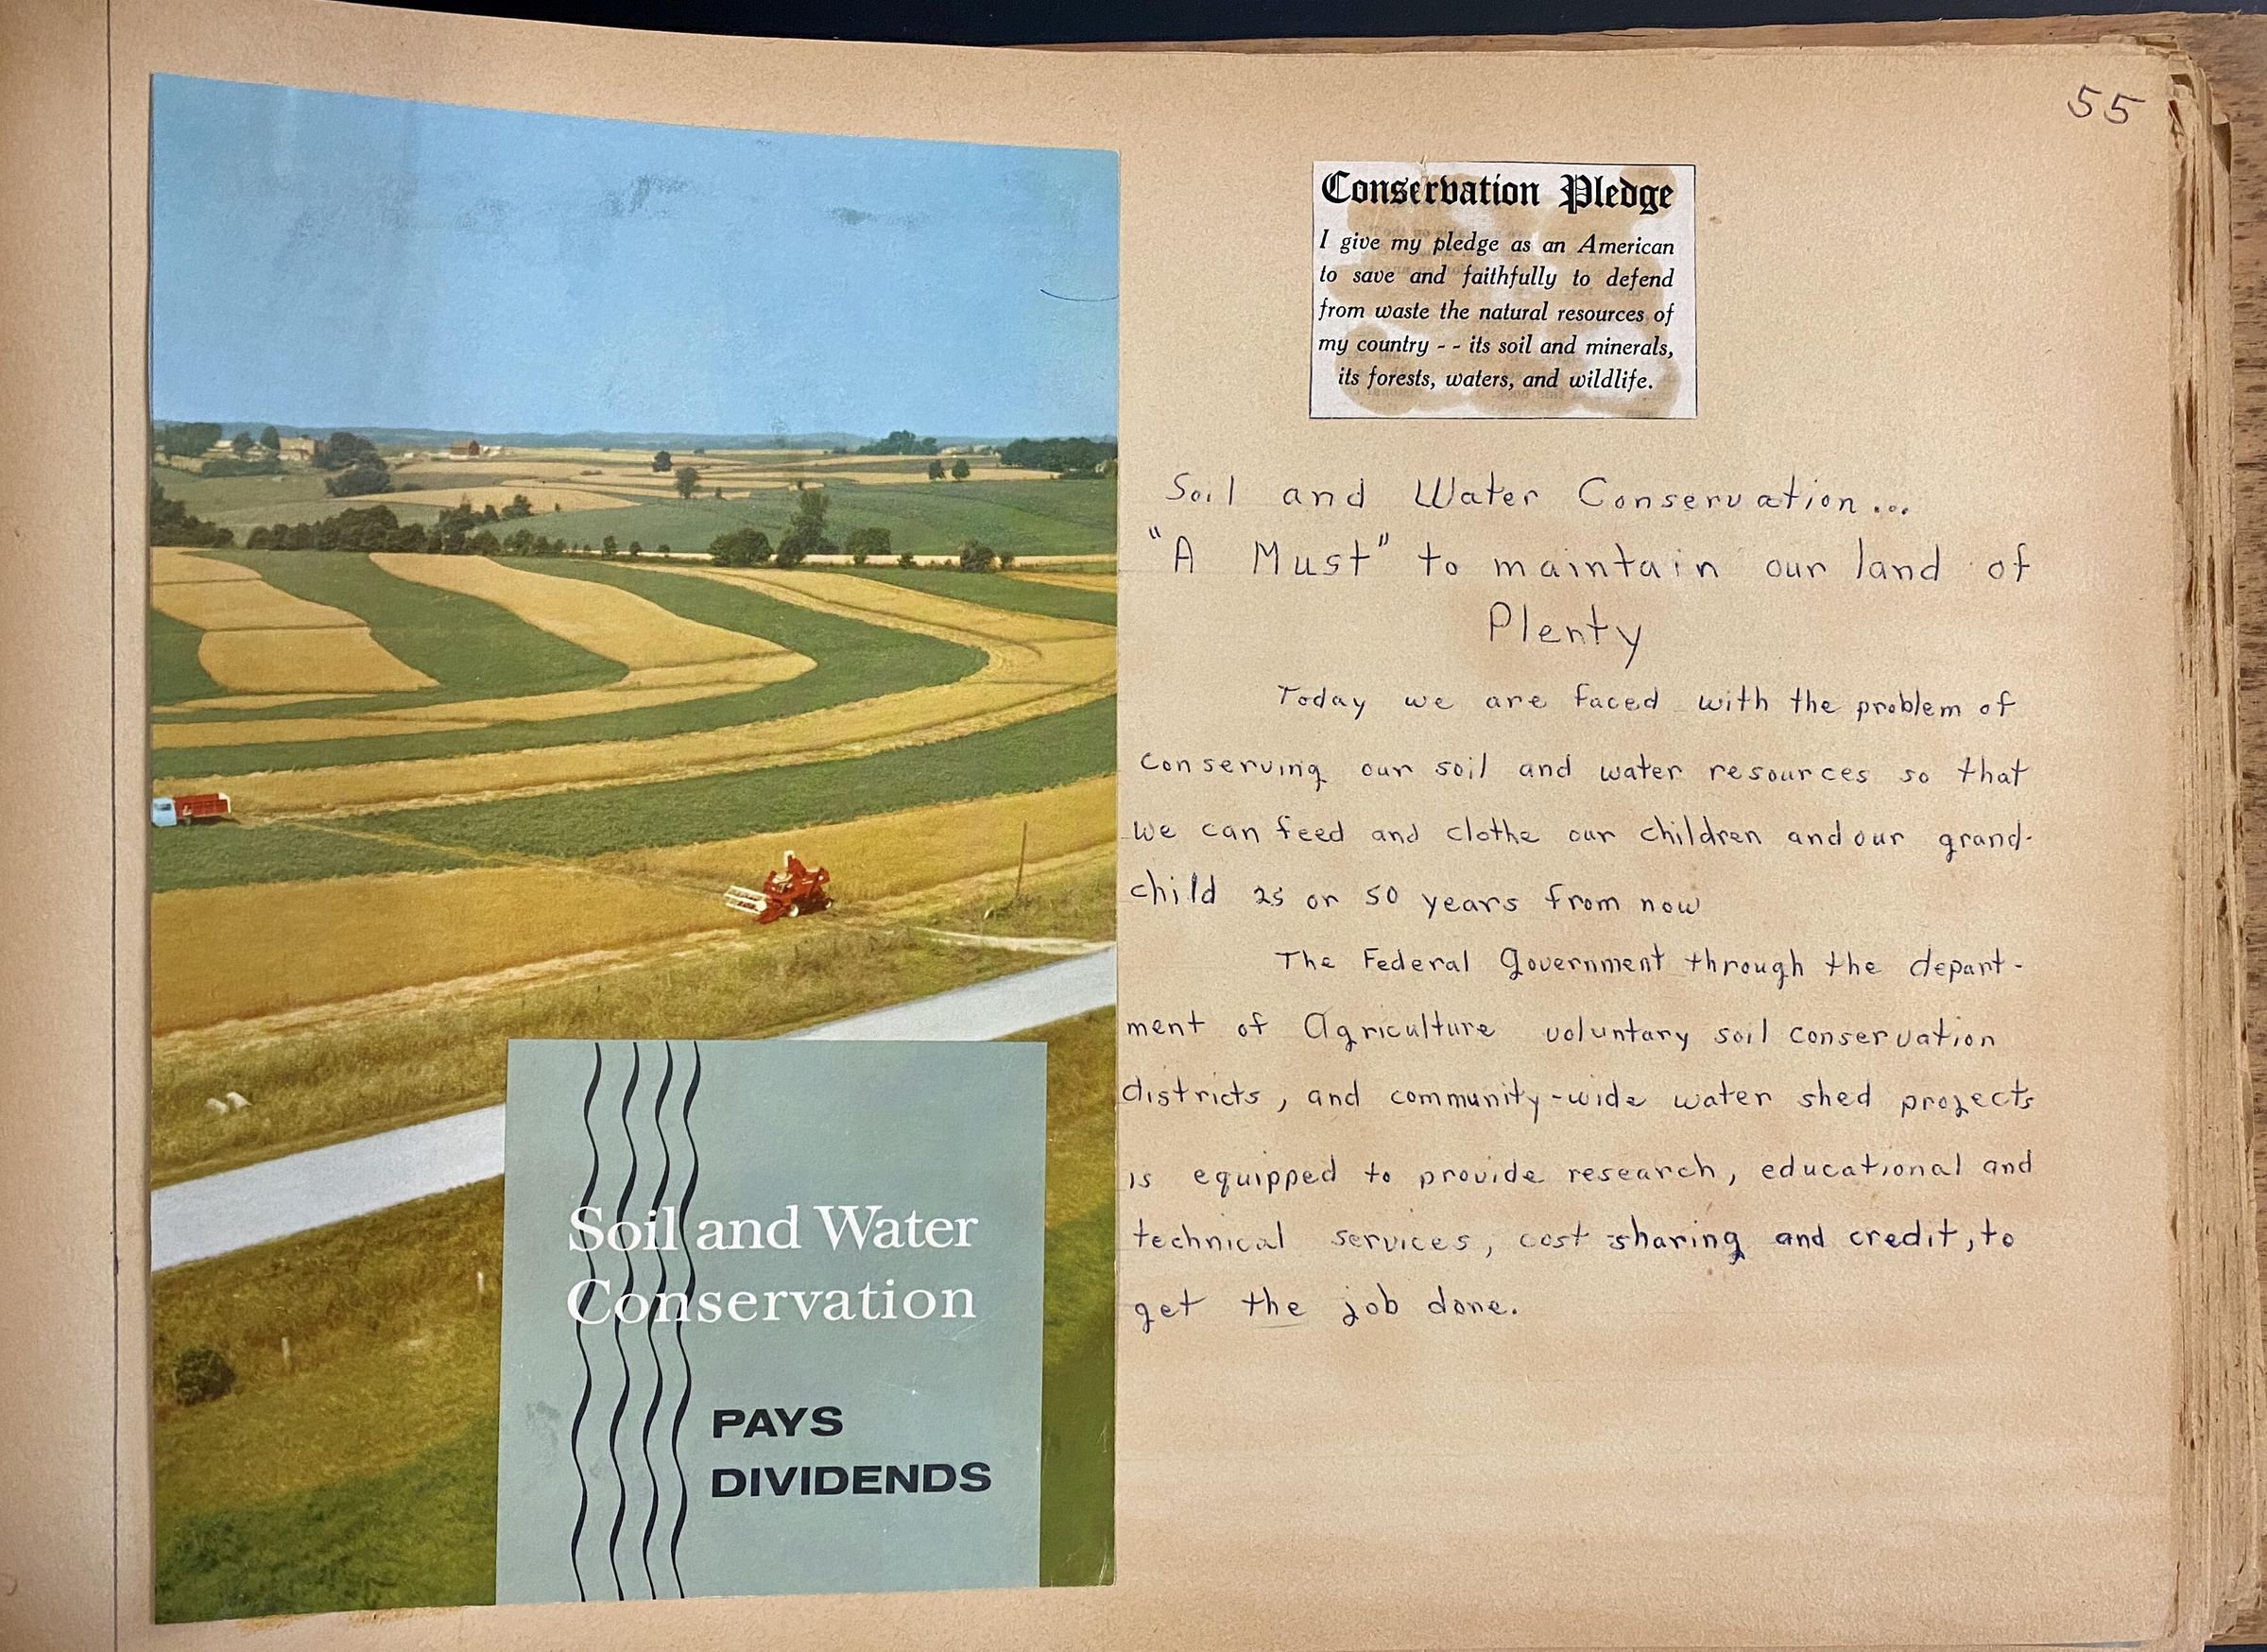 55
Soil and Water
Conservation
PAYS
DIVIDENDS
Conservation Pledge
I give my pledge as an American
to save and faithfully to defend
from waste the natural resources of
my country - - its soil and minerals,
its forests, waters, and wildlife.
Soil and Water Conservation...
"A Must" to maintain our land of
Plenty
Today we are faced with the problem of
conserving our soil and water resources so that
we can feed and clothe our children and our grand-
child 25 or 50 years from now
The Federal Government through the depart-
ment of Agriculture voluntary soil conservation
districts, and community-wide water shed projects
is equipped to provide research, educational and
technical services, cost sharing and credit, to
get the job done.